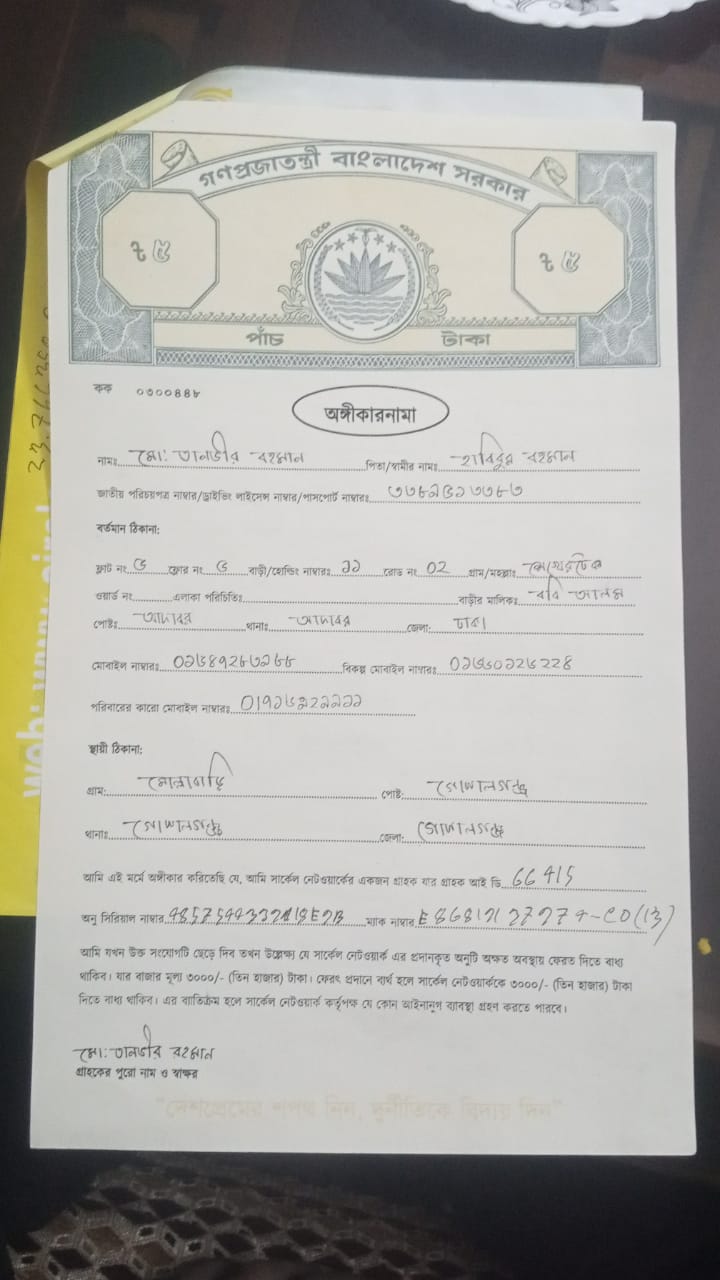 গণপ্রজাতন্ত্রী বাংলাদেশ সরকার
৳ ৫ ৳ ৫
পাঁচ টাকা
কক ০৩০০৪৪৮
অঙ্গীকারনামা
নামঃ মো: তানভীর রহমান পিতা/স্বামীর নামঃ হাবিবুর রহমান
জাতীয় পরিচয়পত্র নাম্বার/ড্রাইভিং লাইসেন্স নাম্বার/পাসপোর্ট নাম্বারঃ
বর্তমান ঠিকানা:
ফ্লাট নং ফ্লোর নং বাড়ী/হোল্ডিং নাম্বারঃ ১১ রোড নং 02 গ্রাম/মহল্লাঃ শেখেরটেক
ওয়ার্ড নং এলাকা পরিচিতিঃ বাড়ীর মালিকঃ রবি আলম
পোষ্টঃ আদাবর থানাঃ আদাবর জেলা: ঢাকা
মোবাইল নাম্বারঃ বিকল্প মোবাইল নাম্বারঃ
পরিবারের কারো মোবাইল নাম্বারঃ
স্থায়ী ঠিকানা:
গ্রাম: মোল্লাবাড়ি পোষ্ট: গোপালগঞ্জ
থানাঃ গোপালগঞ্জ জেলা: গোপালগঞ্জ
আমি এই মর্মে অঙ্গীকার করিতেছি যে, আমি সার্কেল নেটওয়ার্কের একজন গ্রাহক যার গ্রাহক আই ডি 66415
অনু সিরিয়াল নাম্বার ম্যাক নাম্বার
আমি যখন উক্ত সংযোগটি ছেড়ে দিব তখন উল্লেখ্য যে সার্কেল নেটওয়ার্ক এর প্রদানকৃত অনুটি অক্ষত অবস্থায় ফেরত দিতে বাধ্য
থাকিব। যার বাজার মূল্য ৩০০০/- (তিন হাজার) টাকা। ফেরৎ প্রদানে ব্যর্থ হলে সার্কেল নেটওয়ার্ককে ৩০০০/- (তিন হাজার) টাকা
দিতে বাধ্য থাকিব। এর ব্যতিক্রম হলে সার্কেল নেটওয়ার্ক কর্তৃপক্ষ যে কোন আইনানুগ ব্যাবস্থা গ্রহণ করতে পারবে।
মো: তানভীর রহমান
গ্রাহকের পুরো নাম ও স্বাক্ষর
"দেশপ্রেমের শপথ নিন, দুর্নীতিকে বিদায় দিন"